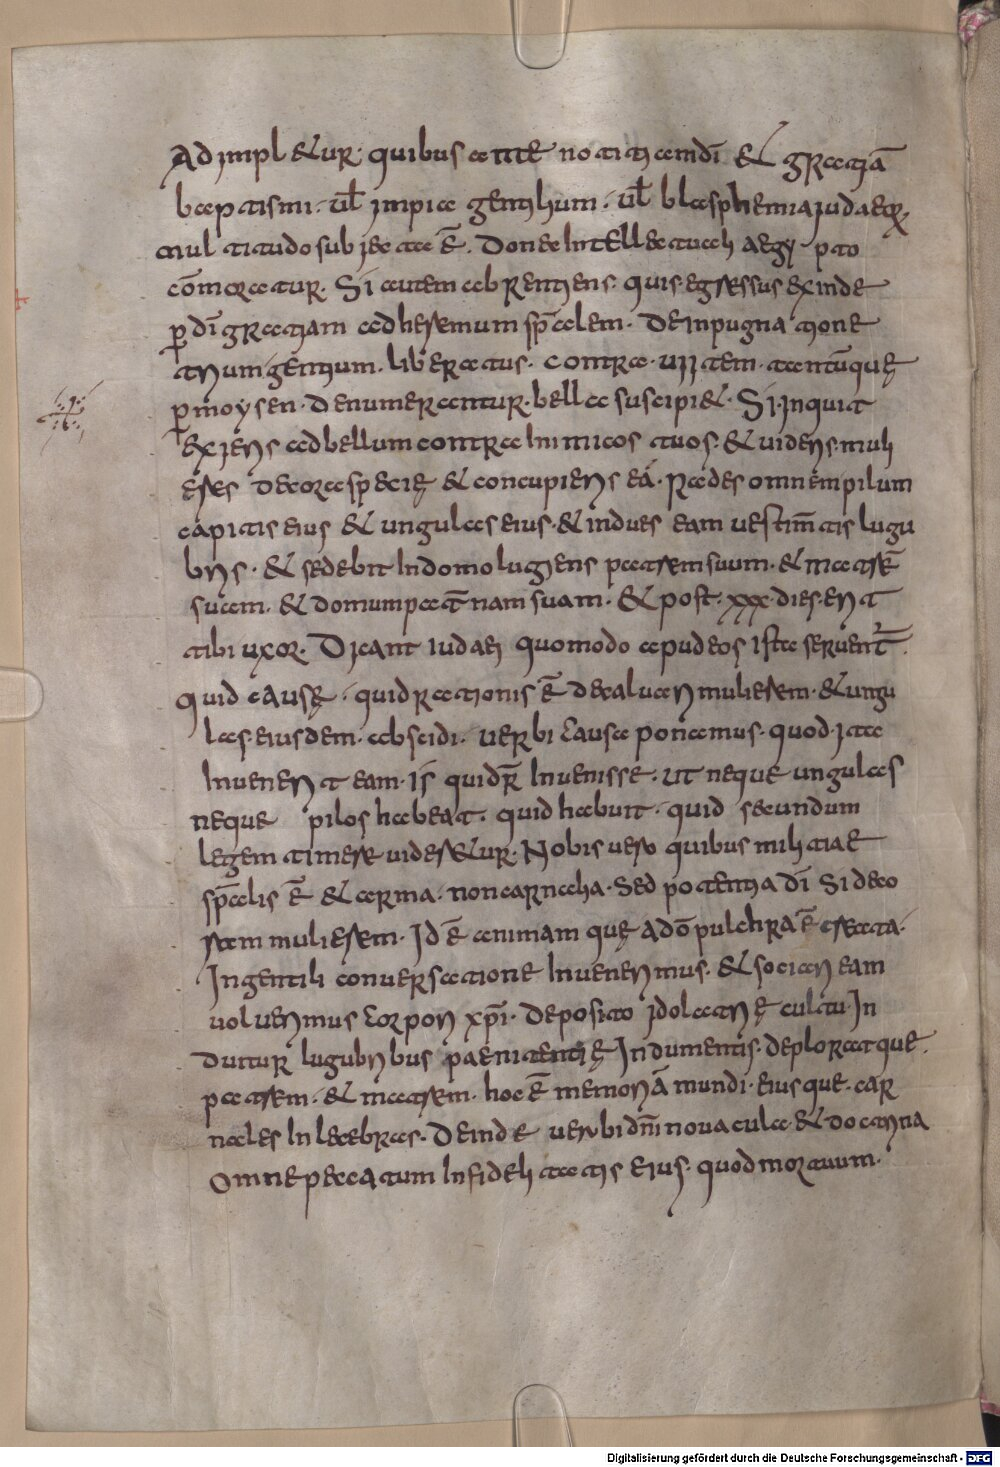 Adimpletur. quibus ante notitiam dī & gratiā
baptismi. vł impia gentilium. vł blasphemia iudaeoꝝ.
multitudo subiecta ē. Donec intellectuali aegypto
cōmoratur. Si autem abrenuens. quis egressus exinde
ꝑ dī gratiam ad heremum sp̄alem. De inpugnatione
trium gentium. liberatus. contra. vii tem. tantūque
ꝑ moysen. denumerantur. bella suscipi&. Si. inquit
exiens ad bellum contra inimicos tuos. & videns. muli
eres decora specie & concupiens eā. Rades omnem pilum
capitis eius & ungulas eius. & indues eam vestim̄tis lugu
bris. & sedebit in domo lugens patrem suum. & matrē
suam. & domum pat̄nam suam. & post. xxx. dies. erit
tibi uxor. Dicant iudaei quomodo apud eos ista servent̄.
Quid causę. quid rationis ē decaluari mulierem. & ungu
las. eiusdem. abscidi. verbi causa ponamus. quod. ita
invenerit eam. is quidr̄ invenisse. ut neque ungulas
neque pilos habeat. quid habuit. quid secundum
legem timere videretur. Nobis vero quibus militiae
sp̄alis ē & arma. non carnalia. Sed potentia dī Si deco
ram mulierem. Id ē animam quę ad ō pulchra ē creata.
In gentili conversatione invenerimus. & sociari eam
voluerimus corpori xp̄i. deposito idolatrię cultu. In
duitur lugubribus paenitentię Indumentis. deploratque.
patrem. & matrem. hoc ē memoriā mundi. eiusque. car
nales inlecebras. Deinde verbi dn̄i novacula. & doctrina
omne peccatum infidelitatis eius. quod mortuum.
Digitalisierung gefördert durch die Deutsche Forschungsgemeinschaft - DFG